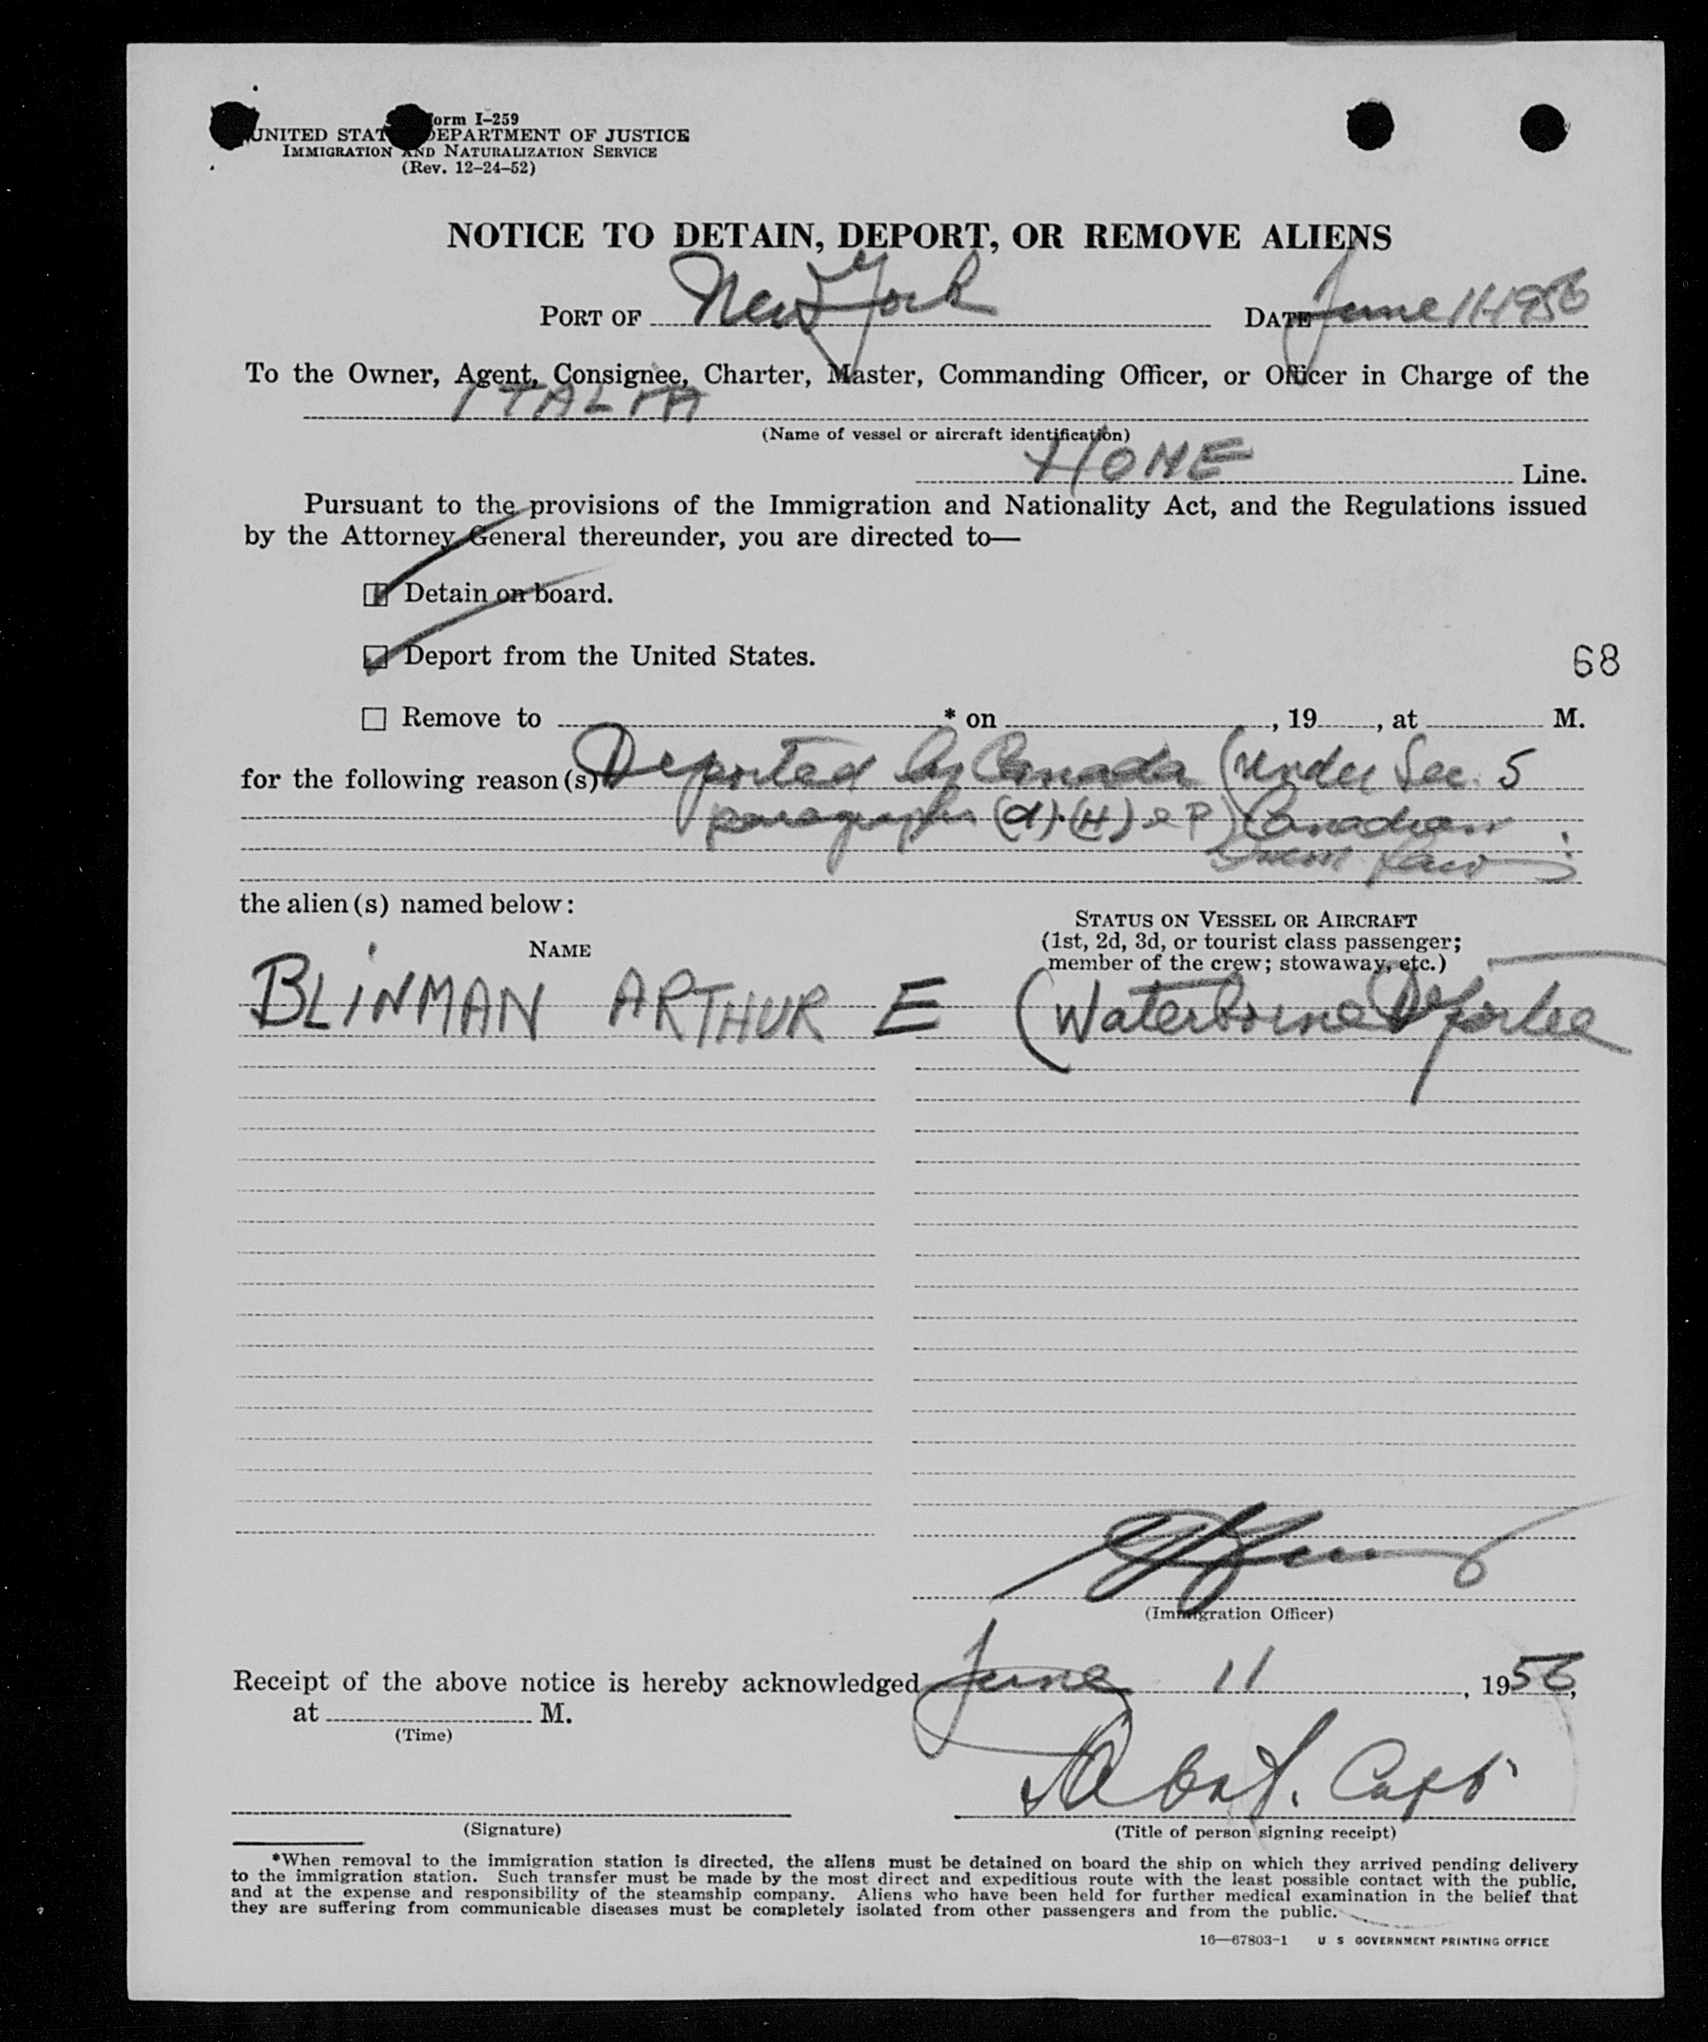 Form I-259
UNITED STATES DEPARTMENT OF JUSTICE
IMMIGRATION AND NATURALIZATION SERVICE
(Rev. 12-24-52)
NOTICE TO DETAIN, DEPORT, OR REMOVE ALIENS
PORT OF New York DATE June 11-1956
To the Owner, Agent, Consignee, Charter, Master, Commanding Officer, or Officer in Charge of the
ITALIA
(Name of vessel or aircraft identification)
HOME Line.
Pursuant to the provisions of the Immigration and Nationality Act, and the Regulations issued
by the Attorney General thereunder, you are directed to—
Detain on board.
Deport from the United States.
68
Remove to * on , 19 , at M.
for the following reason(s) Deported by Canada (under Sec. 5
paragraphs (d).(H) & P) Canadian
Imm. Law
the alien(s) named below:
NAME
STATUS ON VESSEL OR AIRCRAFT
(1st, 2d, 3d, or tourist class passenger;
member of the crew; stowaway, etc.)
BLINMAN ARTHUR E (Waterborne Deportee
(Immigration Officer)
Receipt of the above notice is hereby acknowledged June 11, 1956,
at M.
(Time)
(Signature)
(Title of person signing receipt)
*When removal to the immigration station is directed, the aliens must be detained on board the ship on which they arrived pending delivery
to the immigration station. Such transfer must be made by the most direct and expeditious route with the least possible contact with the public,
and at the expense and responsibility of the steamship company. Aliens who have been held for further medical examination in the belief that
they are suffering from communicable diseases must be completely isolated from other passengers and from the public.
16—67803-1 U S GOVERNMENT PRINTING OFFICE